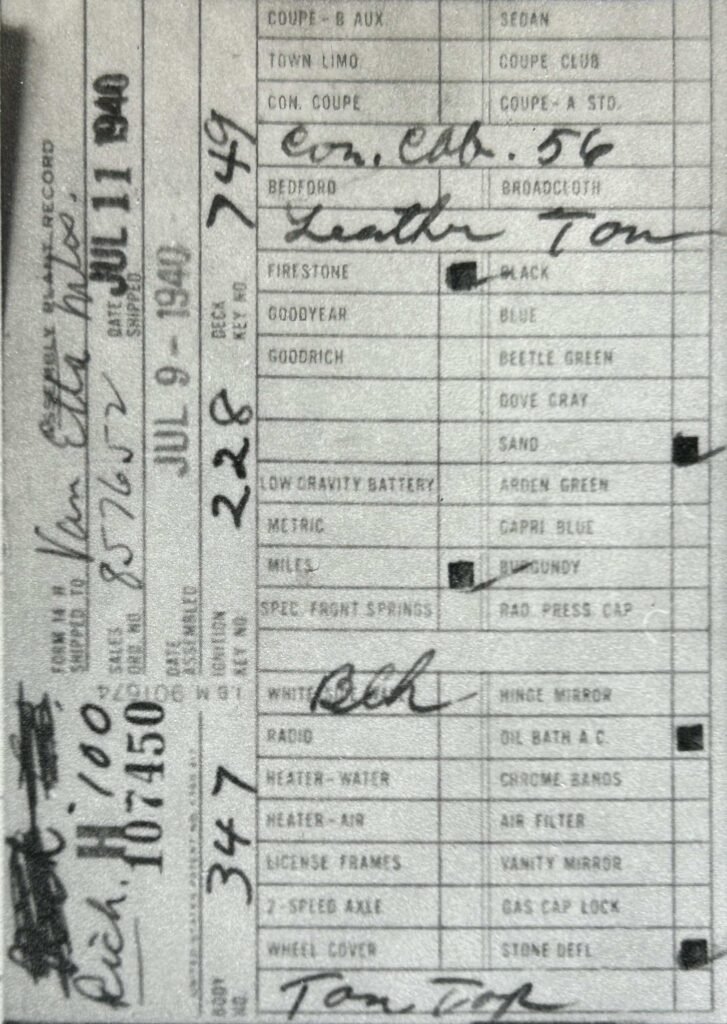 COUPE-B AUX SEDAN
TOWN LIMO COUPE CLUB
CON. COUPE COUPE-A STD.
Con. Cab. 56
BEDFORD BROADCLOTH
Leather Tan
FIRESTONE BLACK
GOODYEAR BLUE
GOODRICH BEETLE GREEN
DOVE GRAY
SAND
LOW GRAVITY BATTERY ARDEN GREEN
METRIC CAPRI BLUE
MILES BURGUNDY
SPEC. FRONT SPRINGS RAD PRESS CAP
WHITE SIDE WALL HINGE MIRROR
Blk
RADIO OIL BATH A.C.
HEATER-WATER CHROME BANDS
HEATER-AIR AIR FILTER
LICENSE FRAMES VANITY MIRROR
2-SPEED AXLE GAS CAP LOCK
WHEEL COVER STONE DEFL
Tan Top
ASSEMBLY PLANT RECORD
FORM 14 H
SHIPPED TO Van Etta Mtrs.
SALES ORD. NO. 857652 DATE SHIPPED JUL 11 1940
DATE ASSEMBLED JUL 9-1940
BODY NO. 347 IGNITION KEY NO. 228 DECK KEY NO. 749
Rich. H-100
107450
IBM 901674